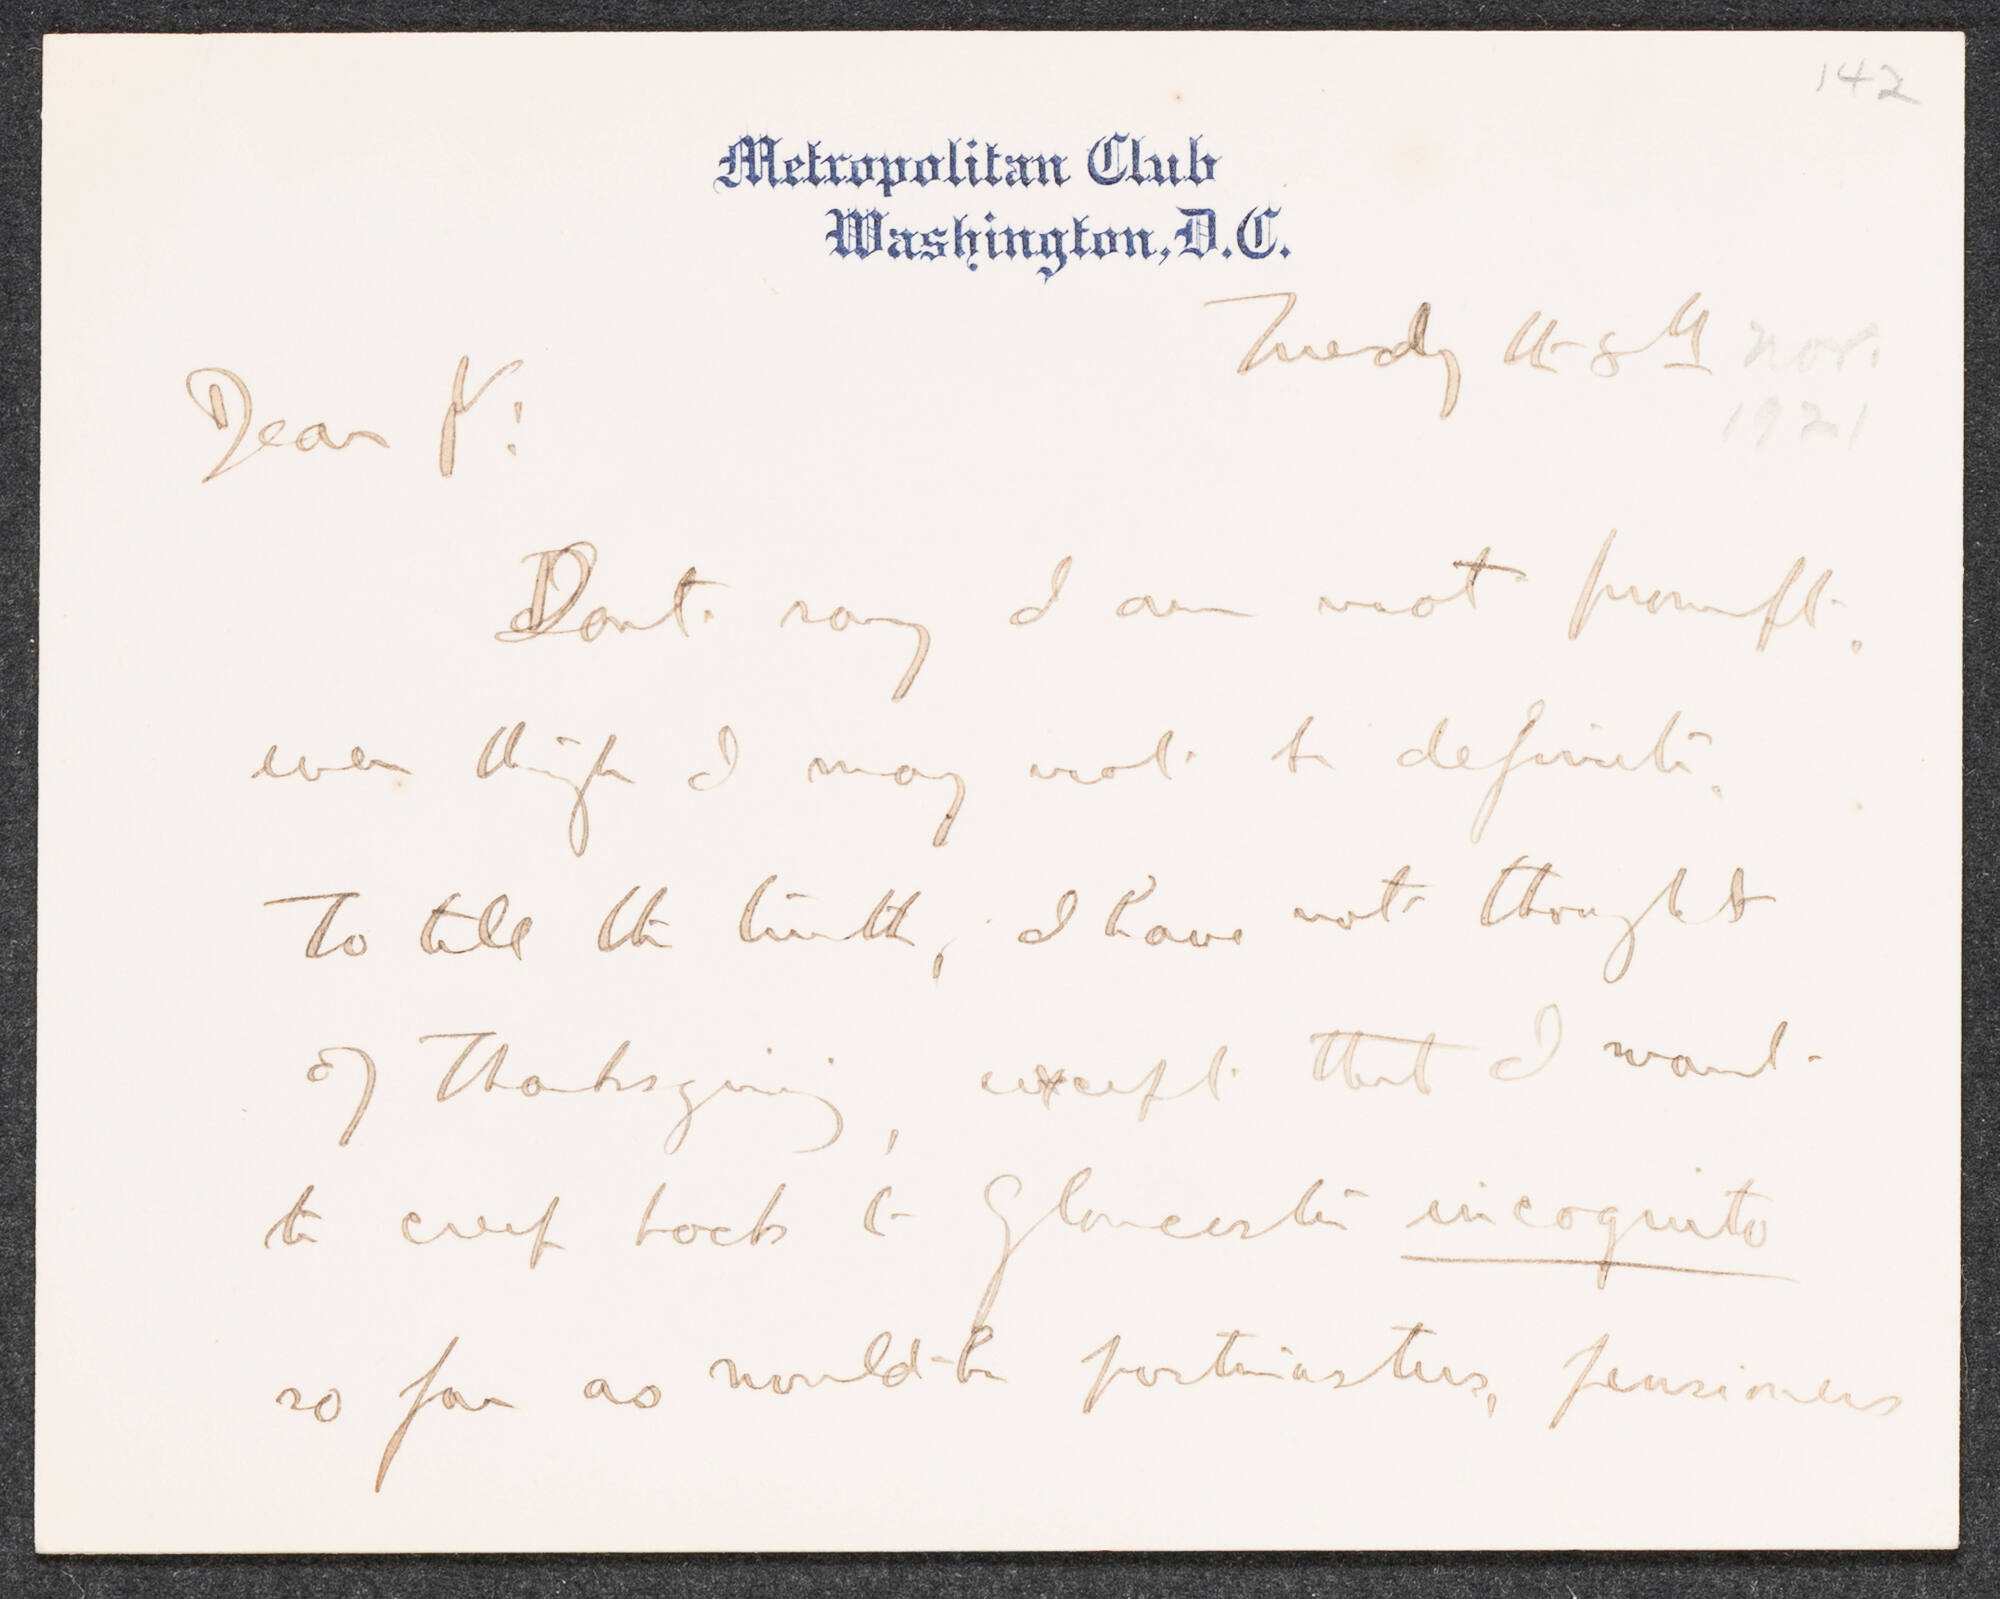 142
Metropolitan Club
Washington, D.C.
Tuesdy the 8th Nov.
1921
Dear Y!
Dont say I am not prompt.
even though I may not be definite.
To tell the truth, I have not thought
of Thanksgiving, except that I want
to creep back to Gloucester incognito
so far as would-be postmasters, pensioners